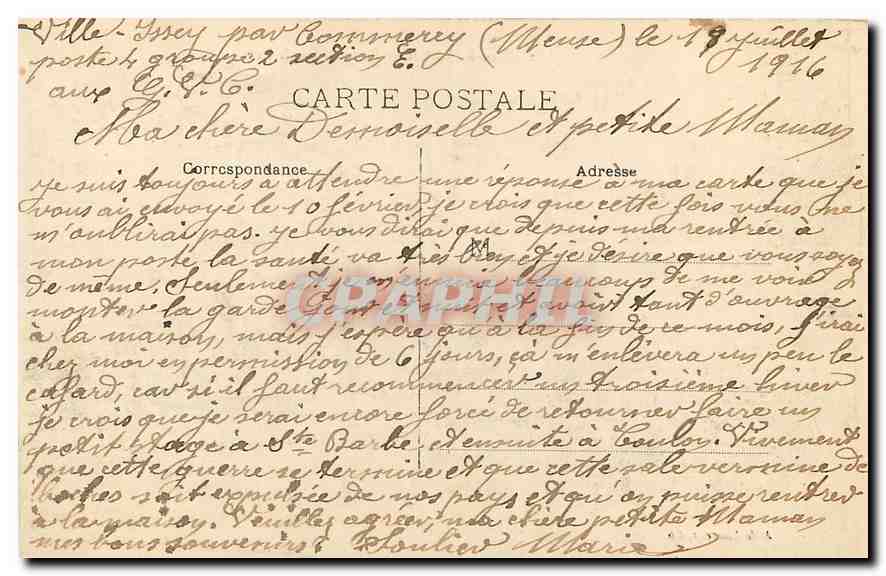 Ville-Issey par Commercy (Meuse) le 19 juillet
poste 4 groupe 2 section E. 1916
aux G.V.C.
CARTE POSTALE
Ma chère Demoiselle et petite Maman
Correspondance Adresse
je suis toujours à attendre une réponse à ma carte que je
vous ai envoyé le 10 février, je crois que cette fois vous ne
m'oublirai pas. je vous dirai que depuis ma rentrée à
mon poste la santé va très bien et je désire que vous soyez
de même. Seulement je m'ennuie beaucoup de me voir
monter la garde jour et nuit et avoir tant d'ouvrage
à la maison, mais j'espère qu'à la fin de ce mois, j'irai
chez moi en permission de 6 jours, çà m'enlèvera un peu le
cafard, car si il faut recommencer un troisième hiver
je crois que je serai encore forcé de retourner faire un
petit stage à Ste Barbe et ensuite à Toulon. Vivement
que cette guerre se termine et que cette sale vermine de
Boches soit expulsée de nos pays et qu'on puisse rentrer
à la maison. Veuillez agréer, ma chère petite Maman
mes bons souvenirs. Soulier Marie
M
CPAPHIL